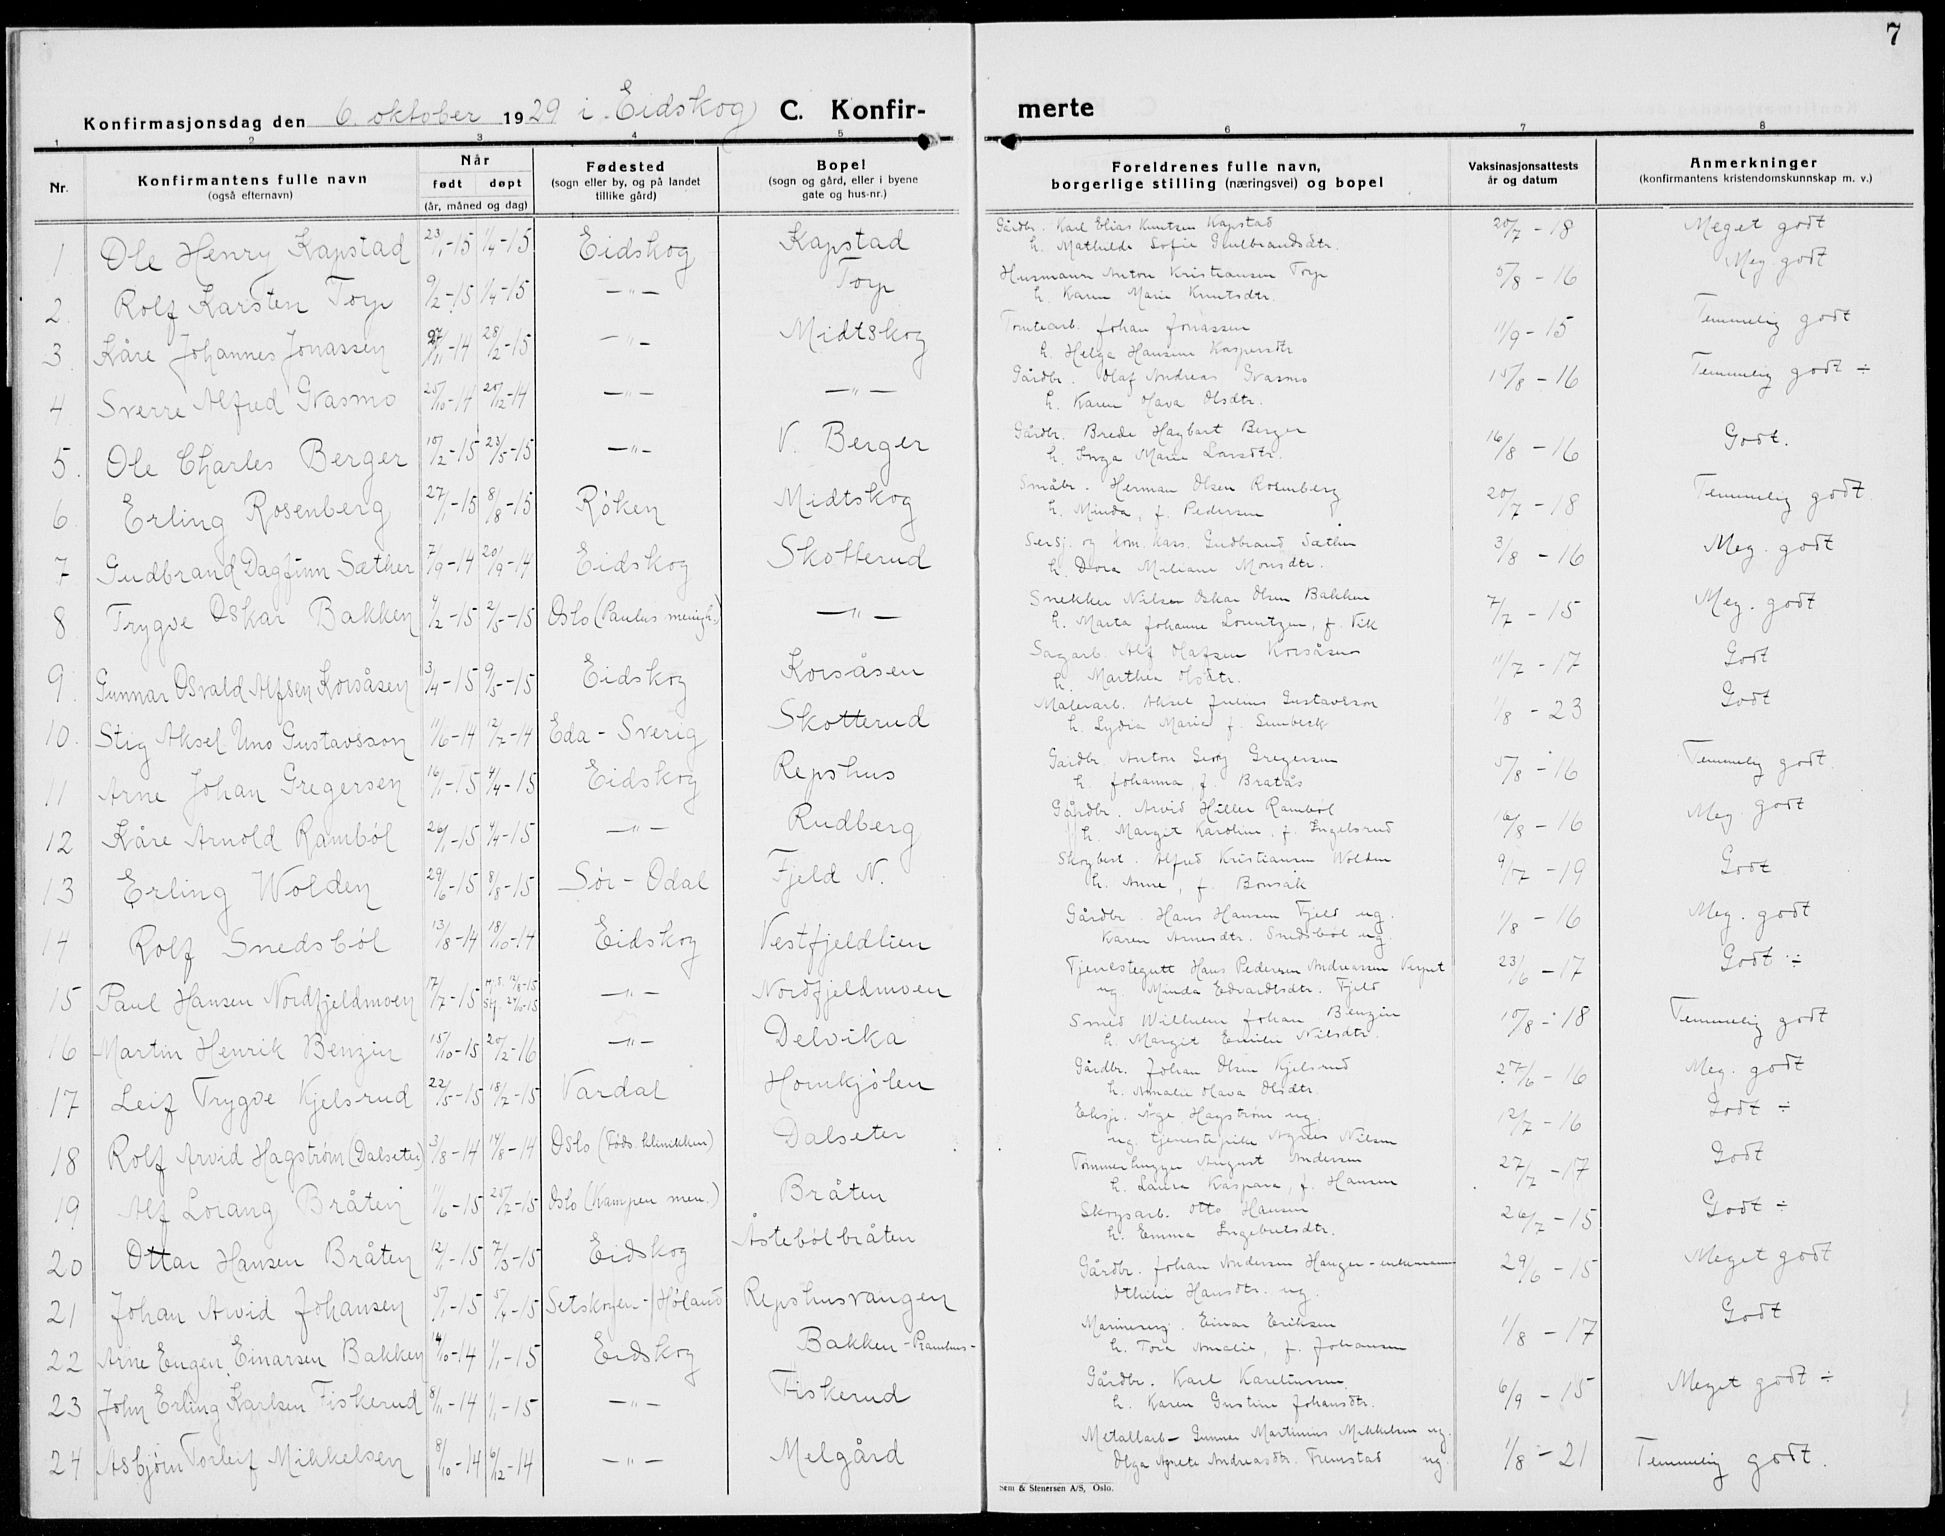 7
Konfirmasjonsdag den 6. oktober 1929 i Eidskog C. Konfir-
merte
1 2 3 4 5 6 7 8
Nr. Konfirmantens fulle navn (også efternavn) Når født døpt (år, måned og dag) Fødested (sogn eller by, og på landet tillike gård) Bopel (sogn og gård, eller i byene gate og hus-nr.) Foreldrenes fulle navn, borgerlige stilling (næringsvei) og bopel Vaksinasjonsattests år og datum Anmerkninger (konfirmantens kristendomskunnskap m. v.)
1 Ole Henry Kapstad 23/1-15 1/4-15 Eidskog Kapstad Gårdbr. Karl Elias Knutsen Kapstad 20/7-18 Meget godt
h. Mathilde Sofie Gulbrandsdtr.
2. Rolf Karsten Torp 9/2-15 1/4-15 —"— Torp Husmann Anton Kristiansen Torp 5/8-16 Meg. godt
h. Karen Marie Knutsdtr.
3. Kåre Johannes Jonassen 27/11-14 28/2-15 —"— Midtskog Tomtearb. Johan Jonassen 11/9-15 Temmelig godt
h. Helga Hansine Kaspersdtr
4. Sverre Alfred Gvasmo 25/10-14 20/12-14 —"— —"— Gårdbr. Olaf Andreas Gvasmo 15/8-16 Temmelig godt ÷
h. Karen Olava Olsdtr.
5. Ole Charles Berger 10/2-15 23/5-15 —"— V. Berger Gårdbr. Brede Hagbart Berger 16/8-16 Godt.
h. Inga Marie Larsdtr.
6. Erling Rosenberg 27/1-15 8/8-15 Røken Midtskog Småbr. Herman Olsen Rosenberg 20/7-18 Temmelig godt
h. Minda, f. Pedersen
7 Gudbrand Dagfinn Sæther 7/9-14 20/9-14 Eidskog Skotterud Sersj. og kom. kass. Gudbrand Sæther 3/8-16 Meg. godt
h. Dora Miliane Monsdtr.
8 Trygve Oskar Bakken 4/2-15 2/5-15 Oslo (Paulus menigh.) —"— Snekker Nilsen Oskar Olsen Bakken 7/7-15 Meg. godt
h. Marta Johanne Lorentzen, f. Vik
9. Gunnar Osvald Alfsen Korsåsen 3/4-15 9/5-15 Eidskog Korsåsen Sagarb. Alf Olafsen Korsåsen 11/7-17 Godt
h. Marthea Olsdtr.
10. Stig Aksel Uno Gustavsson 11/6-14 12/7-14 Eda - Sverig Skotterud Malerarb. Aksel Julius Gustavsson 1/8-23 Godt
h. Lydia Marie f.
11 Arne Johan Gregersen 16/1-15 4/4-15 Eidskog Repshus Gårdbr. Anton Georg Gregersen 5/8-16 Temmelig godt.
h. Johanna, f. Bratås
12 Kåre Arnold Rambøl 26/1-15 4/4-15 —"— Rudberg Gårdbr. Arvid Hiller Rambøl 16/8-16 Meg. godt
h. Margit Karoline, f. Ingelsrud
13 Erling Wolden 29/6-15 8/8-15 Sør-Odal Fjeld N. Skogbest. Alfred Kristiansen Wolden 9/7-19 Godt
h. Anne, f. Bonsåk
14 Rolf Snedsbøl 13/8-14 18/10-14 Eidskog Vestfjeldlien Gårdbr. Hans Hansen Fjeld ug. 1/8-16 Meg. godt
Karen Arnesdtr. Snedsbøl ug.
15 Paul Hansen Nordfjeldmoen 17/7-15 —"— Nordfjeldmoen Tjenstegutt Hans Pedersen Andreassen 23/6-17 Godt ÷
ug. Minda Edvardsdtr. Fjeld
16 Martin Henrik Benzin 15/10-15 20/2-16 —"— Delvika Smed Wilhelm Johan Benzin 10/8-18 Temmelig godt
h. Margit Emilie Nilsdtr.
17 Leif Trygve Kjelsrud 22/5-15 18/7-15 Vardal Hornkjølen Gårdbr. Johan Olsen Kjelsrud 27/6-16 Meg. godt
h. Amalie Olava Olsdtr.
18 Rolf Arvid Hagstrøm (Dalseter) 3/8-14 14/8-14 Oslo (Føds. klinikken) Dalseter Eksp. Åge Hagstrøm ug. 12/7-16 Godt ÷
ug. tjenestepike Agnes Nilsen
19 Alf Lorang Bråten 11/6-15 25/7-15 Oslo (Kampen men.) Bråten Tømmerhugger August Andersen 27/7-17 Godt
h. Laura Kaspara, f. Hansen
20 Ottar Hansen Bråten 12/1-15 7/3-15 Eidskog Åstebølbråten Skogsarb. Otto Hansen 26/7-15 Godt ÷
h. Emma Ingebretsdtr.
21 Johan Arvid Johansen 5/1-15 5/4-15 Setskogen - Høland Repshusvangen Gårdbr. Johan Andersen Hanger - enkemann 29/6-15 Meget godt
Othilie Hansdtr. ug.
22 Arne Eugen Einarsen Bakken 14/10-14 1/1-15 Eidskog Bakken - Ramhus- Einar Eriksen 1/8-17 Godt
h. Tora Amalie, f. Johansen
23 John Erling Karlsen Fiskerud 8/11-14 1/1-15 —"— Fiskerud Gårdbr. Karl Karelinssen 6/9-15 Meget godt ÷
h. Karen Gustine Johansdtr.
24 Asbjørn Torleif Mikkelsen 8/10-14 6/12-14 —"— Melgård Metallarb - Gunnar Martinius Mikkelsen ug. 1/8-21 Temmelig godt.
Olga Agnete Andreasdtr. Fremstad ug.
Sem & Stenersen A/S, Oslo.